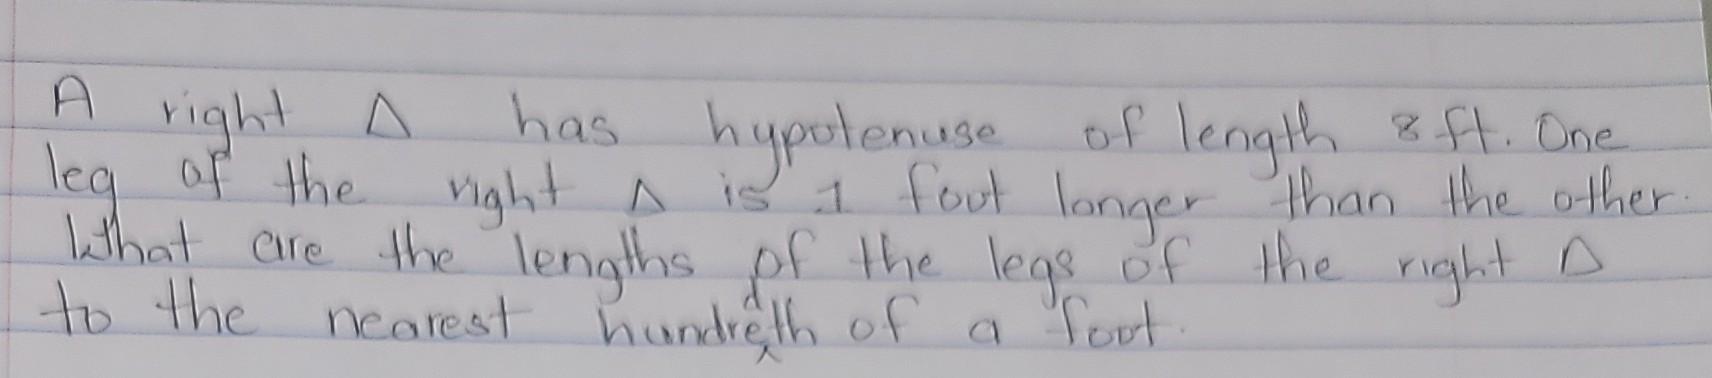 A right △ has hypotenuse of length 8 ft. One
leg of the right △ is 1 foot longer than the other.
What are the lengths of the legs of the right △
to the nearest hundredth of a foot.